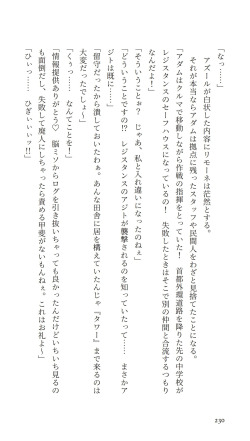 「なっ……」
　アズールが白状した内容にリモーネは茫然とする。
　それが本当ならアダムは拠点に残ったスタッフや民間人をわざと見捨てたことになる。
「アダムはクルマで移動しながら作戦の指揮をとっていた！　首都外環道路を降りた先の中学校が
レジスタンスのセーフハウスになっているのよ！　失敗したときはそこで別の仲間と合流するつもり
なんだよ！」
「そういうことぉ？　じゃあ、私と入れ違いになったのねぇ」
「どういうことですの!?　レジスタンスのアジトが襲撃されるのを知っていたって……　まさかア
ジトは既に……」
「留守だったから潰しておいたわぁ。あんな田舎に居を構えていたんじゃ『タワー』まで来るのは
大変だったでしょ〜」
「くぅっ……　なんてことを！」
「情報提供ありがとう♡　脳ミソからログを引き抜いちゃっても良かったんだけどいちいち見るの
も面倒だし、失敗して廃人にしちゃったら責める甲斐がないもんねぇ。これはお礼よ〜」
「ひっ……　ひぎぃぃぃっ!!」
230